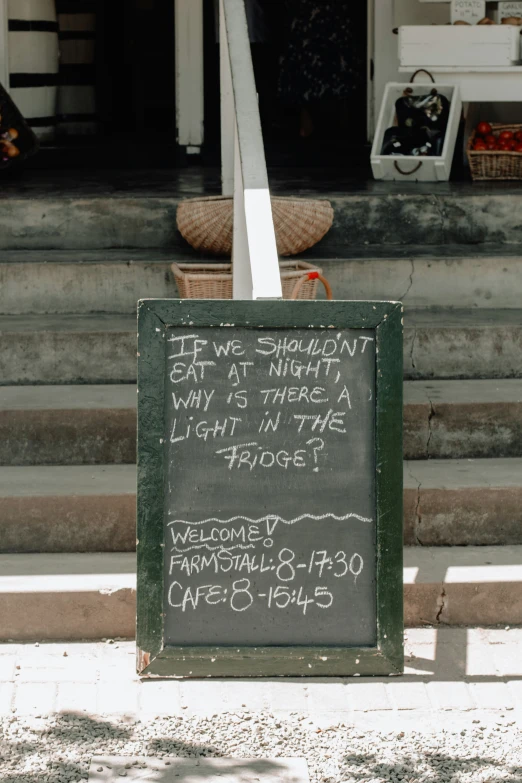 POTATO
IF WE SHOULDN'T
EAT AT NIGHT,
WHY IS THERE A
LIGHT IN THE
FRIDGE?
WELCOME!
FARMSTALL: 8-17:30
CAFE: 8-15:45